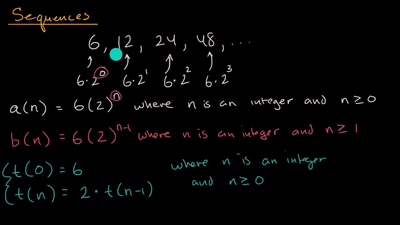 Sequences
6, 12, 24, 48, ...
6·2^0 6·2^1 6·2^2 6·2^3
a(n) = 6(2)^n where n is an integer and n≥0
b(n) = 6(2)^(n-1) where n is an integer and n≥1
{t(0) = 6 where n is an integer
{t(n) = 2·t(n-1) and n≥0